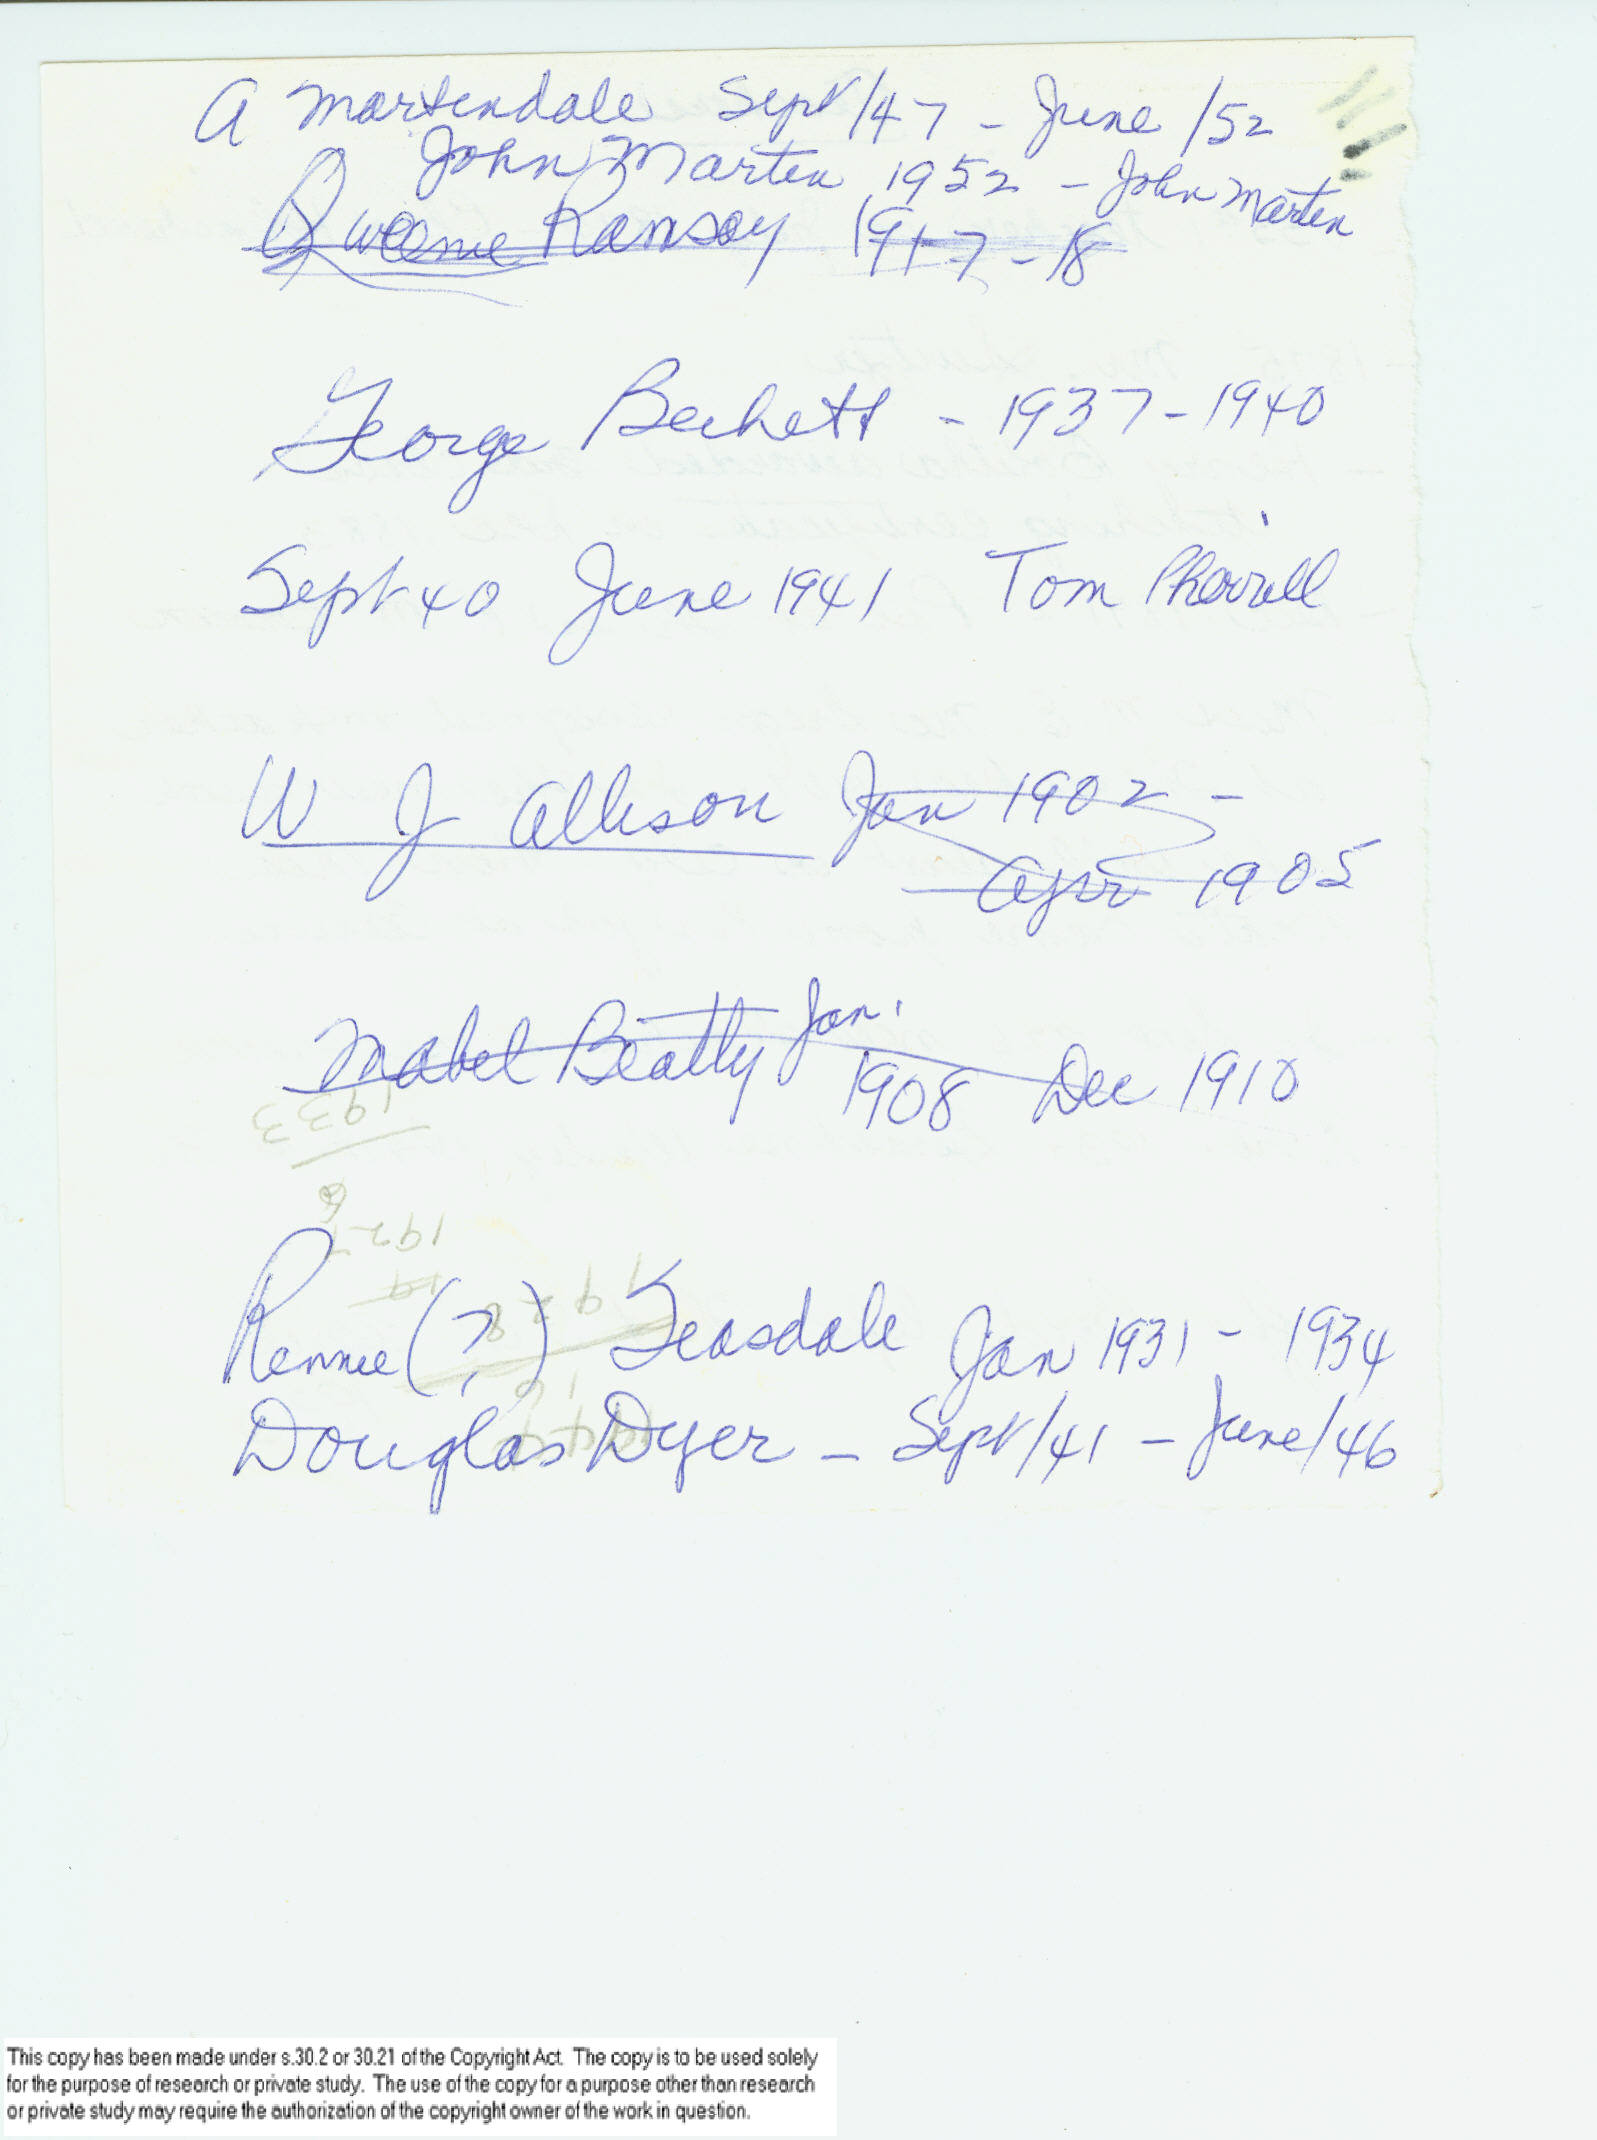 A Martendale Sept/47 - June /52
John Marten 1952 - John Marten
Queenie Ramsay 1917-18
George Beckett - 1937-1940
Sept 40 June 1941 Tom
W J Allison Jan 1902 -
Apr 1905
Mabel Beatty Jan.
1908 Dec 1910
1933
6
1927
19
1928
Rennie (?) Teasdale Jan 1931 - 1934
Douglas Dyer - Sept/41 - June/46
This copy has been made under s.30.2 or 30.21 of the Copyright Act. The copy is to be used solely
for the purpose of research or private study. The use of the copy for a purpose other than research
or private study may require the authorization of the copyright owner of the work in question.